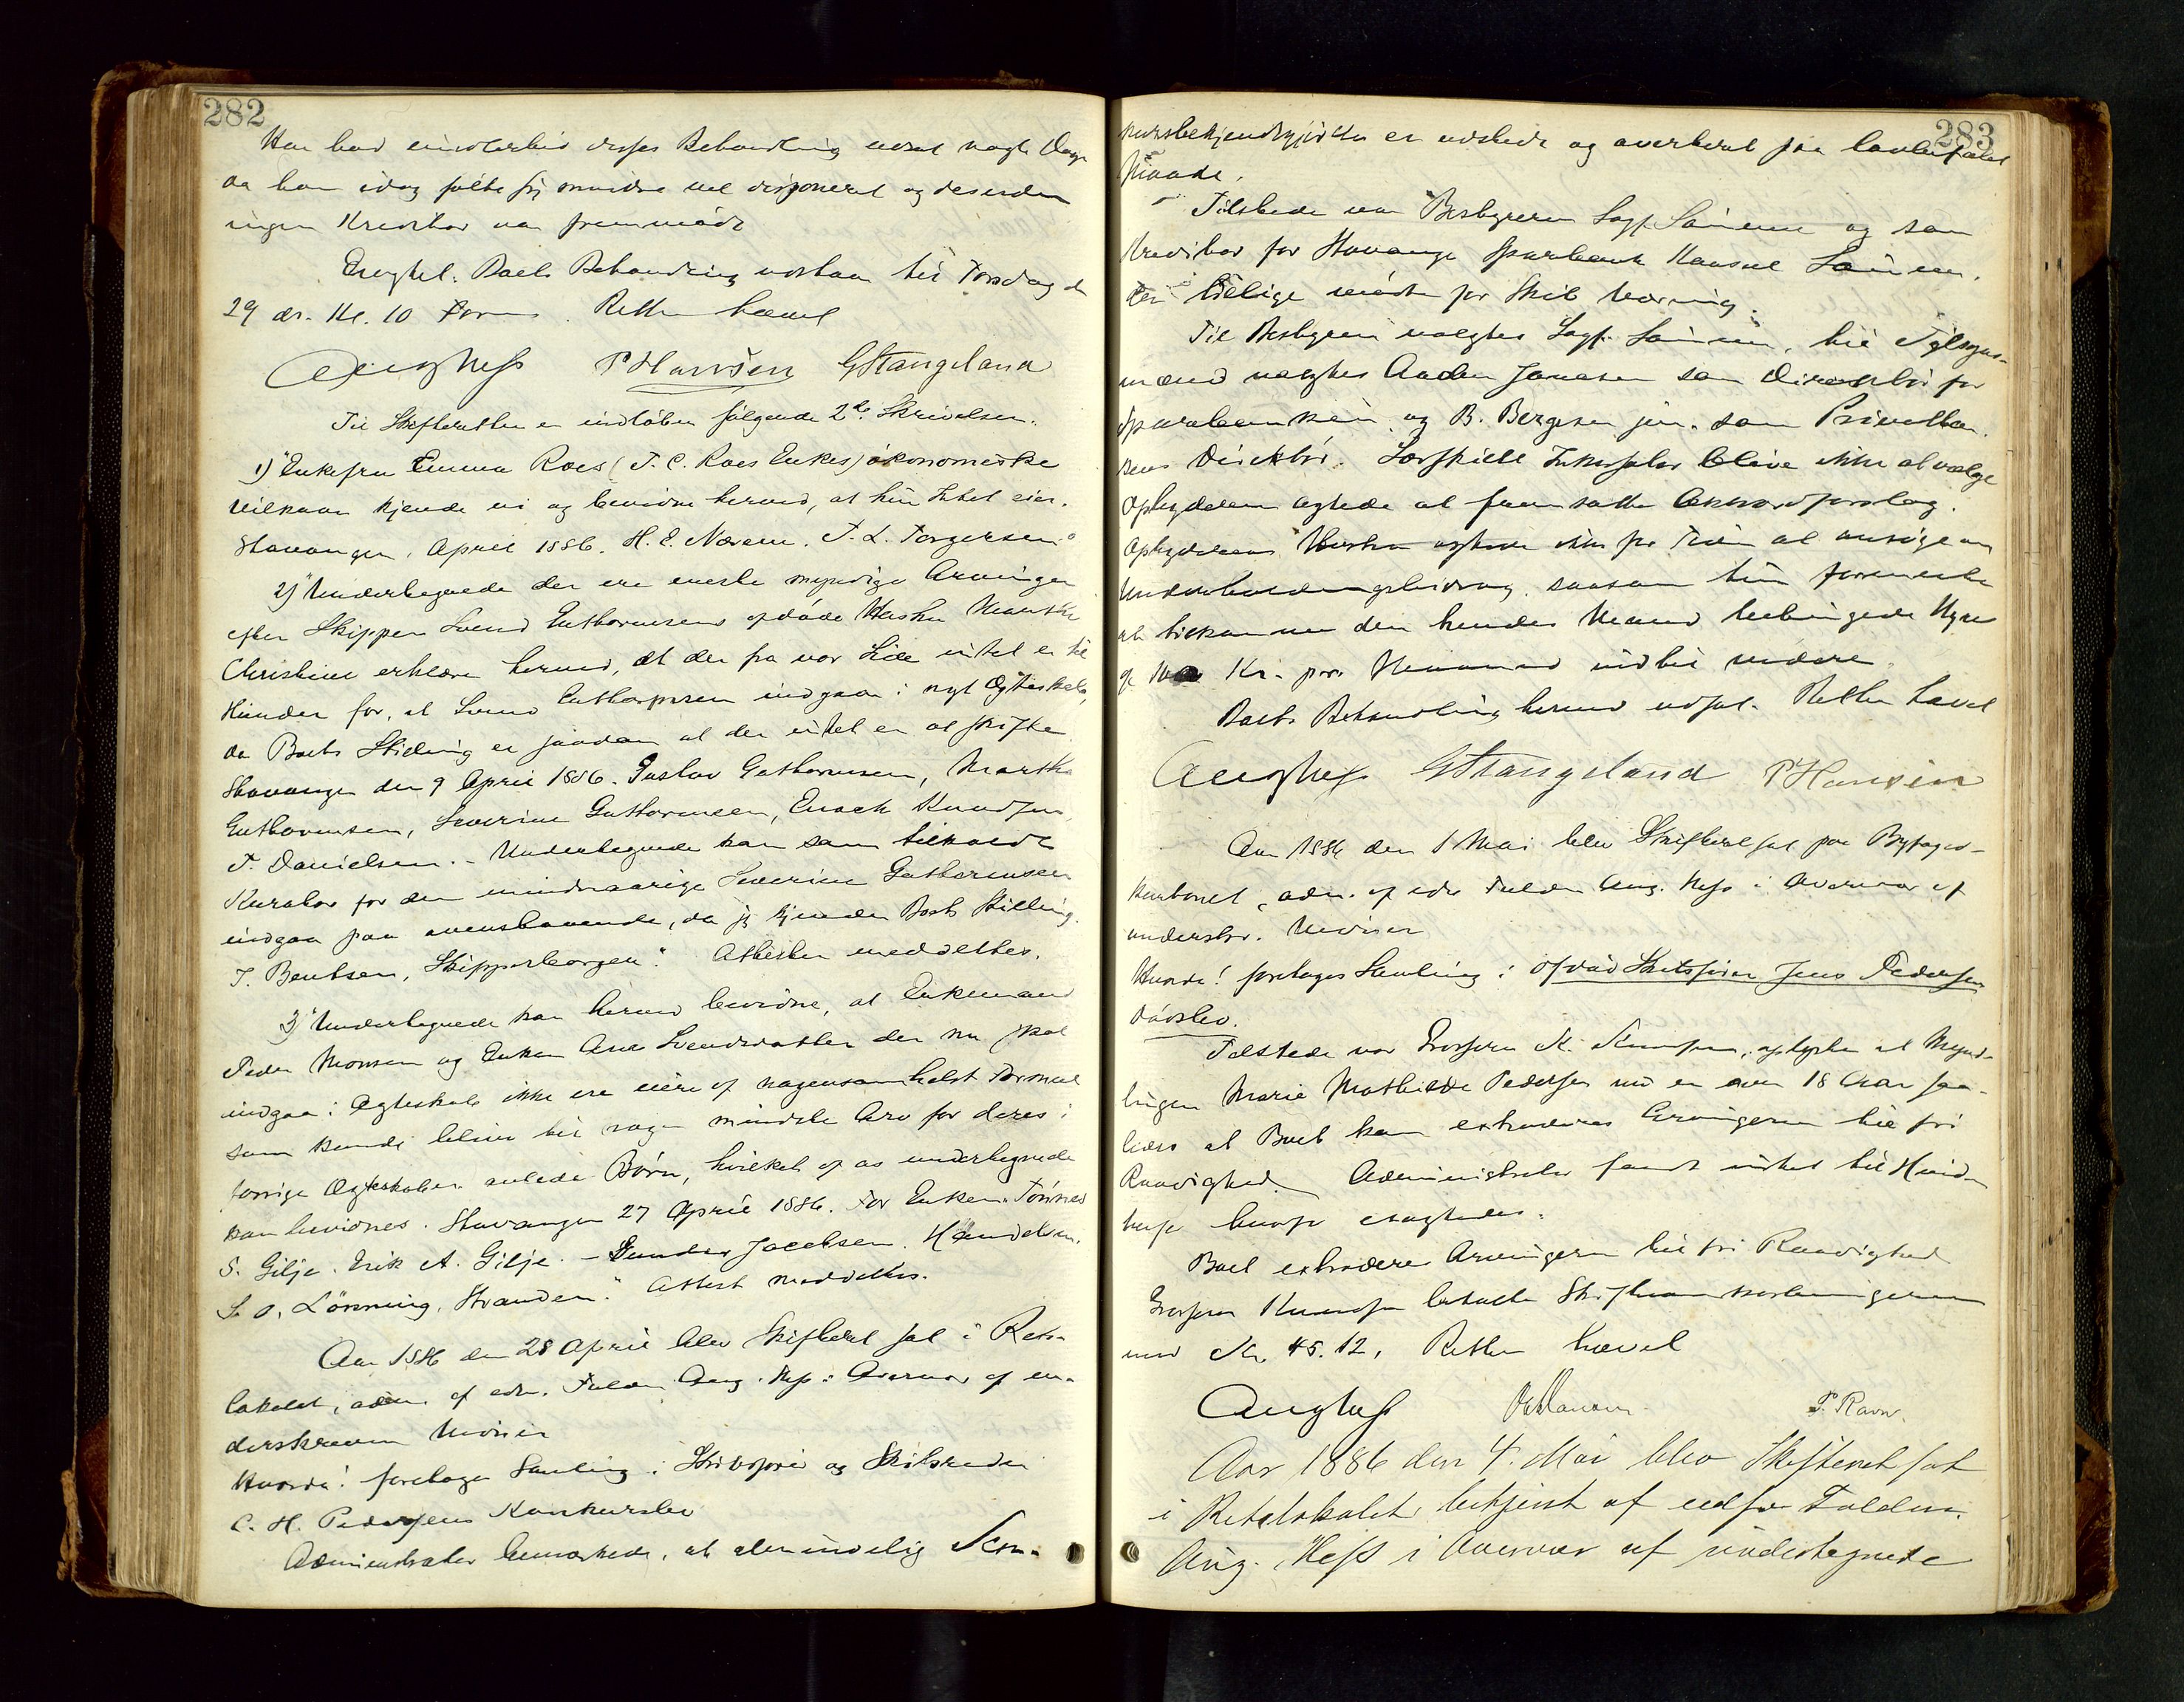 282
Han bad imidlertid disses Behandling udsat nogle Dage
da han idag følte sig mindre vel disponeret og desuden
ingen Kreditor var fremmødt
Eragtet: Boets Behandling udstaar til Torsdag d
29 ds. Kl. 10 Form. Retten hævet
Aug Hess P Hansen G Stangeland
Til Skifteretten er indløben følgende 2de Skrivelser.
1) "Enkefru Emma Roes (T. C. Roes Enkes) økonomiske
Vilkaar kjende vi og bevidne herved, at hun Intet eier.
Stavanger, April 1886. H. E. Næsem. T. L. Torgersen"
2) "Undertegnede der ere eneste myndige Arvinger
efter Skipper Svend Guthormsens afdøde Hustru Marthe
Christine erklære herved, at der fra vor Side intet er til
Hinder for, at Svend Guthormsen indgaar i nyt Ægteskab,
da Boets Stilling er saadan at der intet er at skifte
Stavanger den 9 April 1886. Gustav Guthormsen, Martha
Guthormsen, Severine Guthormsen, Enoch Knudsen,
T. Danielsen. - Undertegnede kan som tilkaldt
Kurator for den mindreaarige Severine Guthormsen
indgaa paa ovenstaaende, da jeg kjender Boets Stilling.
T. Bentsen, Skipperborger." Attester meddeltes.
3) "Undertegnede kan herved bevidne, at Enkemand
Peder Monsen og Enken Ane Svendsdatter der nu skal
indgaa i Ægteskab ikke ere eiere af nogensomhelst Formue
som kunde blive til nogen mindste Arv for deres i
forrige Ægteskaber avlede Børn, hvilket af os undertegnede
kan bevidnes. Stavanger 27 April 1886. For Enken Tønnes
S. Gilje. Erik A. Gilje. - Gunder Jacobsen. Handelsm.
S. O. Lønning, Stranden." Attest meddeltes.
Aar 1886 den 28 April blev Skifteret sat i Rets-
lokalet, adm. af edsv. Fuldm. Aug. Hess i Overvær af un-
derskrevne Vidner
Hvorda! foretoges Samling i Skibsfører og Skibsreder
C. H. Pedersens Konkursbo
Administrator bemærkede, at almindelig Kon-
283
kursbekjendtgjørelse er udstedt og averteret paa lovbefalet
Maade.
Tilstede var Bestyreren Sagf. Sømme og som
Kreditor for Stavanger Sparebank Konsul Sømme,
der tillige mødte for Skib
Til Bestyrer valgtes Sagf. Sømme, til Tilsyns-
mænd valgtes Auden Jonasen som Direktør for
Sparebanken og B. Bergesen jun. som Privatban-
kens Direktør. Særskilt Inkassator blev ikke at vælge
Opbyderen agtede at fremsætte Akkordforslag.
Opbyderens Hustru agtede ikke for Tiden at ansøge om
Underholdningsbidrag, saasom hun formente
at tilkomme den hendes Mand betingede Hyre
af Kr. pr. Maaned indtil videre.
Boets Behandling herved udsat. Retten hævet
Aug Hess G Stangeland P Hansen
Aar 1886 den 1 Mai blev Skifteret sat paa Byfoged-
kontoret, adm. af edsv Fuldm Aug. Hess i Overvær af
underskr. Vidner
Hvorda! foretoges Samling i Afdød Skibsfører Jens Pedersens
Dødsbo.
Tilstede var Grosserer K. Knudsen, oplyste at Mynd-
lingen Marie Mathilde Pedersen nu er over 18 Aar saa-
ledes at Boet kan extraderes Arvingerne til fri
Raadighed. Administrator fandt intet til Hinder
herfor hvorfor eragtedes:
Boet extraderes Arvingerne til fri Raadighed
Grosserer Knudsen betalte Skifteomkostningerne
med Kr. 45.12. Retten hævet
Aug Hess P Hansen T. Ravn.
Aar 1886 den 4. Mai blev Skifteret sat
i Retslokalet, betjent af edsv Fuldm.
Aug. Hess i Overvær af undertegnede